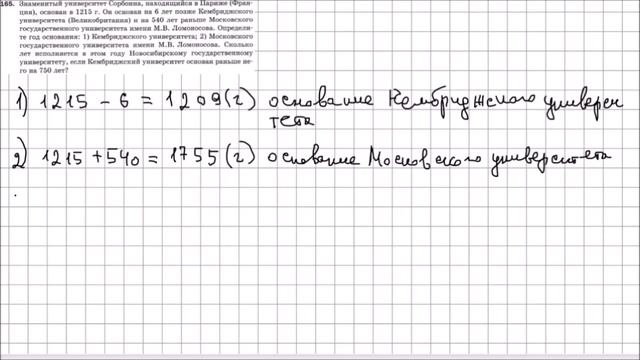 165. Знаменитый университет Сорбонна, находящийся в Париже (Фран-
ция), основан в 1215 г. Он основан на 6 лет позже Кембриджского
университета (Великобритания) и на 540 лет раньше Московского
государственного университета имени М.В. Ломоносова. Определи-
те год основания: 1) Кембриджского университета; 2) Московского
государственного университета имени М.В. Ломоносова. Сколько
лет исполняется в этом году Новосибирскому государственному
университету, если Кембриджский университет основан раньше не-
го на 750 лет?
1) 1215 - 6 = 1209 (г) основание Кембриджского универси
тета
2) 1215 + 540 = 1755 (г) основание Московского университета